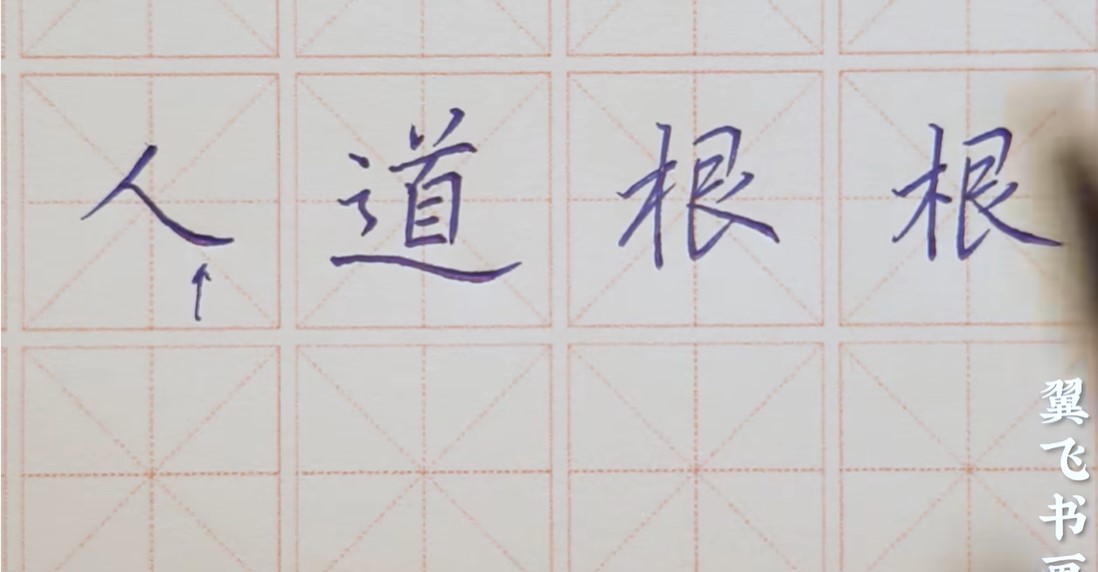 人道根根
翼飞书画